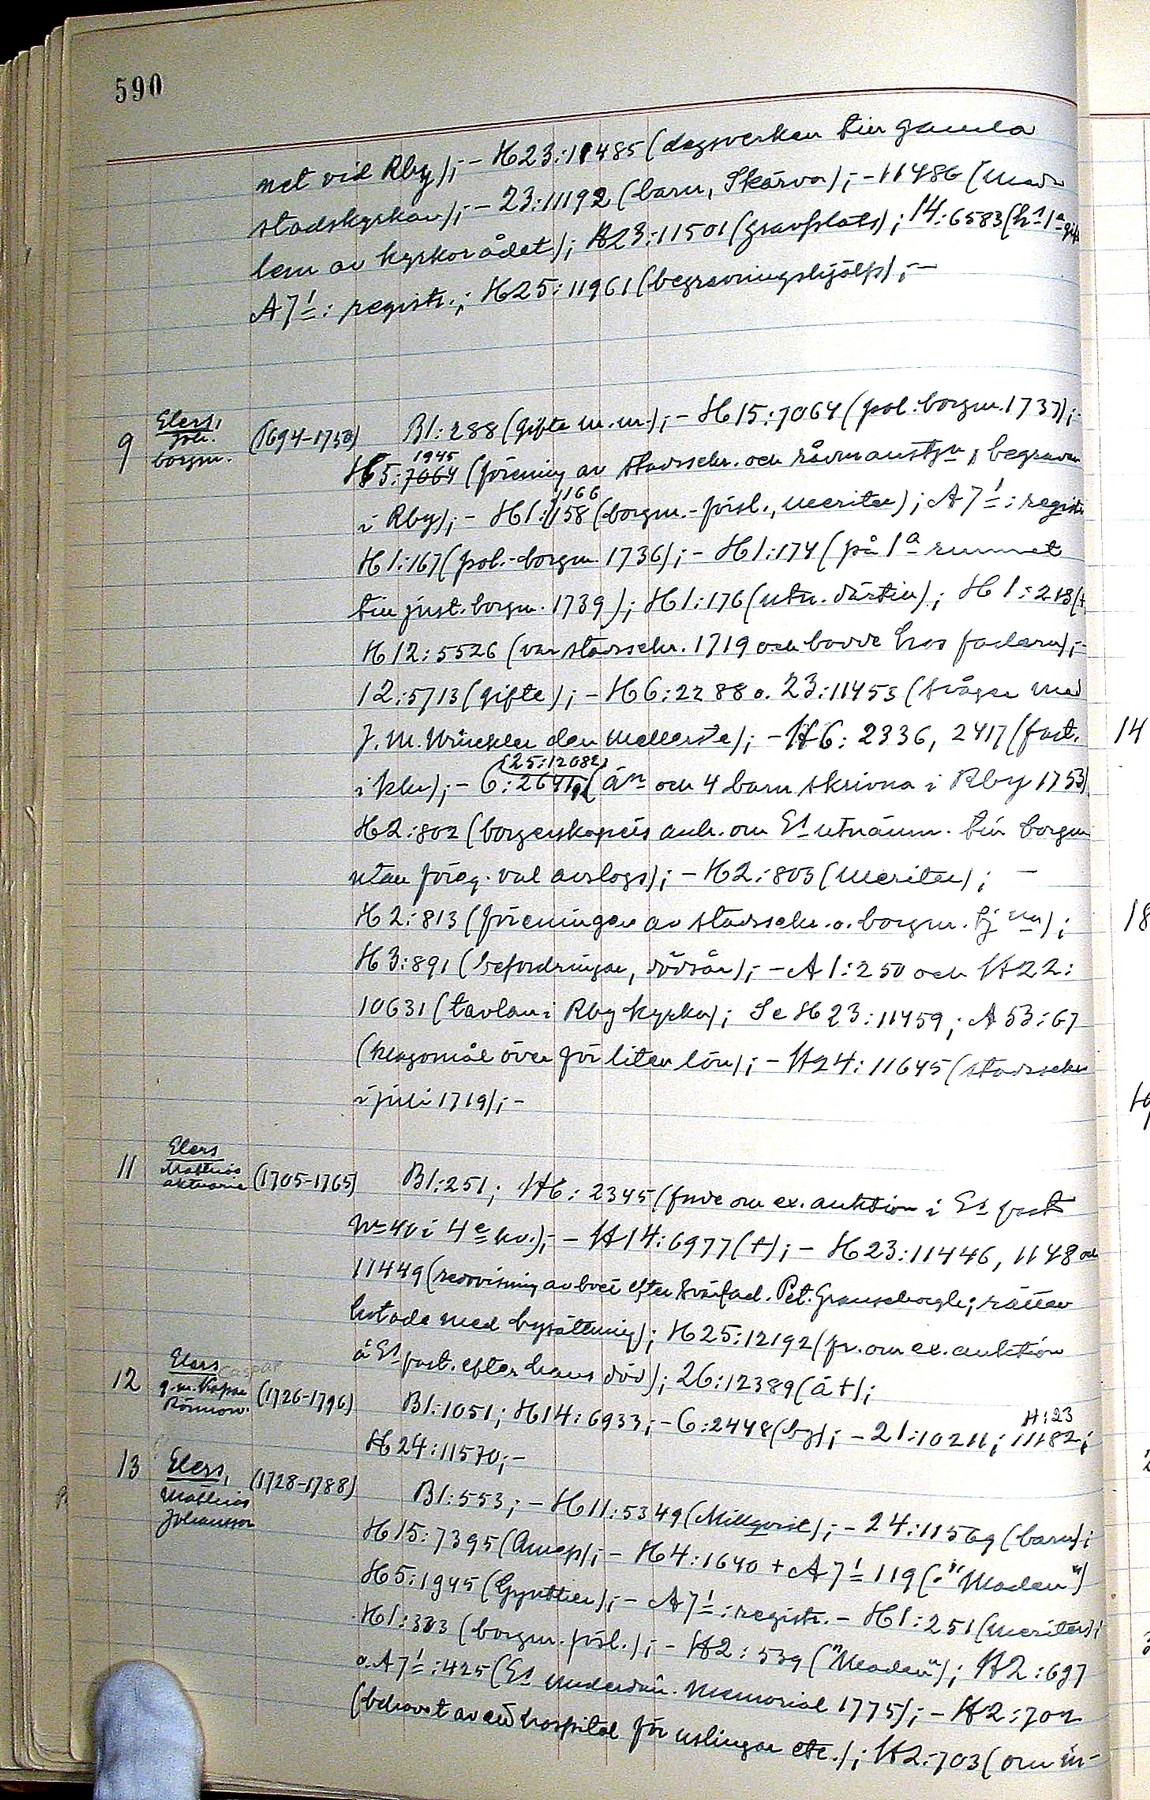 590
net vid Rby); - H23:11485 (dagsverken till gamla
stadskyrkan); - 23:11192 (barn, Skärva); - 11486 (med-
lem av kyrkorådet); H23:11501 (gravplats); 14:6583 (
A7¹: registr.; H25:11961 (begravningshjälp); -
9 Elers, Joh. borgm. (1694-1750) B1:288 (gifte m.m.); - H15:7064 (pol. borgm. 1737);
1945
H5:7064 (förening av stadssekr. och rådmanstjn, begraven
1166
i Rby); - H1:158 (borgm.-försl., meriter); A7¹: registr
H1:167 (pol.-borgm. 1736); - H1:174 (på 1a rummet
till just. borgm. 1739); H1:176 (utn. därtill); H1:218 (
H12:5526 (var stadssekr. 1719 och bodde hos fadern); -
12:5713 (gifte); - H6:2288 o. 23:11453 (svåger med
J. M. Winckler den mellerste); - H6:2336, 2417 (fast.
(25:12082)
i kla); - 6:2641 (än och 4 barn skrivna i Rby 1753)
H2:802 (borgerskapets anh. om Es utnämn. till borgm
utan föreg. val avslogs); - H2:803 (meriter); -
H2:813 (föreningen av stadssekr. o. borgm. tjna);
H3:891 (befordringar, dödsår); - A1:250 och H22:
10631 (tavlan i Rby kyrka); Se H23:11459; A53:67
(klagomål över för liten lön); - H24:11645 (stadssekr
i juli 1719); -
11 Elers Mathias aktuarie (1705-1765) B1:251; H6:2345 (fråge om ex. auktion i Es fast
No 40 i 4e kv.); - H14:6977 (+); - H23:11446, 1148 och
11449 (redovisning av boet efter svärfad. Pet. ; rätten
hotade med bysättning); H25:12192 (fr. om ex. auktion
å Es fast. efter hans död); 26:12389 (å +);
12 Elers Caspar g.m. Rönnow. (1726-1796) B1:1051; H14:6933; - 6:2448 (by); - 21:10211; 11182;
H:23
H24:11570; -
13 Elers, Mathias Johansson (1728-1788) B1:553; - H11:5349 (Millqvist); - 24:11569 (barn);
H15:7395 ( - H4:1640 + A7¹ 119 (."Maden")
H5:1945 ( - A7¹: registr. - H1:251 (meriter);
H1:383 (borgm. försl.); - H2:539 ("Maden"); H2:697
o. A7¹:425 (Es underdån. Memorial 1775); - H2:702
(behovet av ett hospital för uslingar etc.); H2:703 (om in-
14
18
19